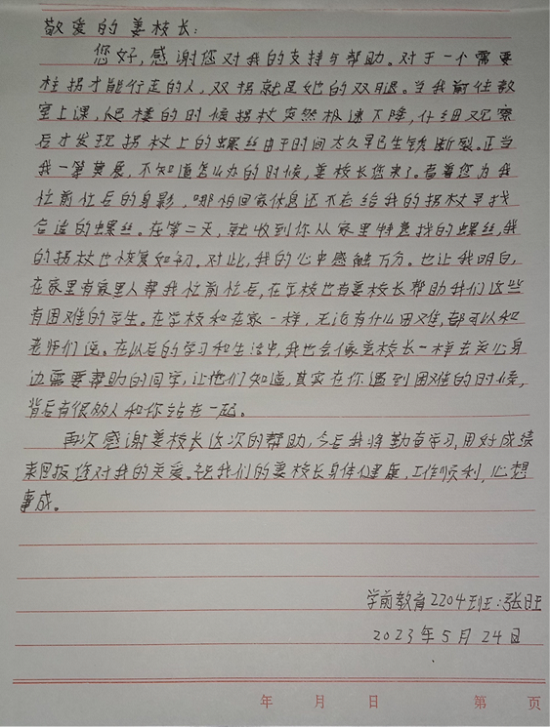 敬爱的姜校长:
您好,感谢您对我的支持与帮助。对于一个需要
拄拐才能行走的人,双拐就是她的双腿。当我前往教
室上课,促楼的时候拐杖突然极速下降,仔细观察
后才发现拐杖上的螺丝由于时间太久早已生锈断裂。正当
我一筹莫展,不知道怎么办的时候,姜校长您来了。看着您为我
忙前忙后的身影,哪怕回家休息还不忘给我的拐杖寻找
合适的螺丝。在第二天,就收到你从家里特意找的螺丝,我
的拐杖也恢复如初。对此,我的心中感触万分。也让我明白,
在家里有家里人帮我忙前忙后,在学校也有姜校长帮助我们这些
有困难的学生。在学校和在家一样,无论有什么困难,都可以和
老师们说。在以后的学习和生活中,我也会像姜校长一样去关心身
边需要帮助的同学,让他们知道,其实在你遇到困难的时候,
背后有很多人和你站在一起。
再次感谢姜校长这次的帮助,今后我将勤奋学习,用好成绩
来回报您对我的关爱。祝我们的姜校长身体健康,工作顺利,心想
事成。
学前教育2204班:张旺
2023年5月24日
年 月 日 第 页